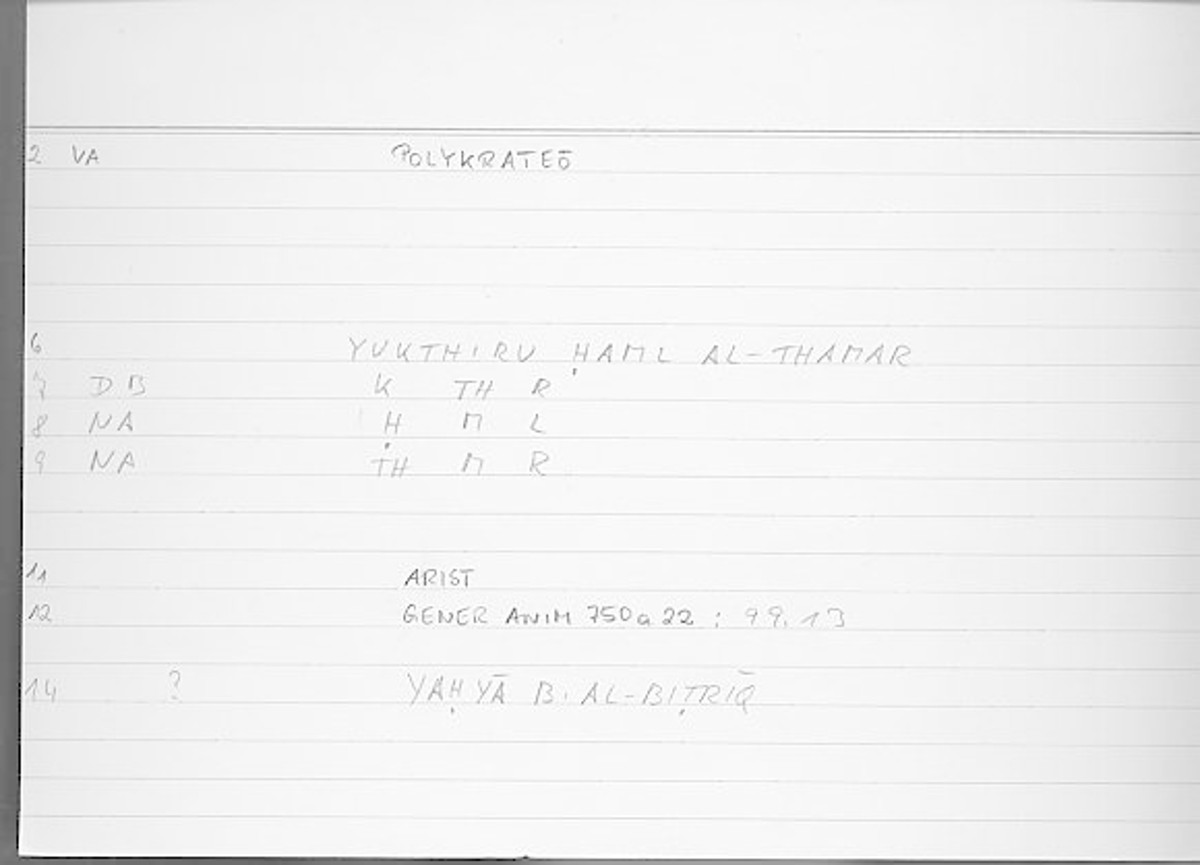 2 VA POLYKRATEŌ
6 YUKTHIRU ḤAML AL-THAMAR
7 DB K TH R
8 NA Ḥ M L
9 NA TH M R
11 ARIST
12 GENER ANIM 750a22 : 99.13
14 ? YAḤYĀ B. AL-BIṬRĪQ